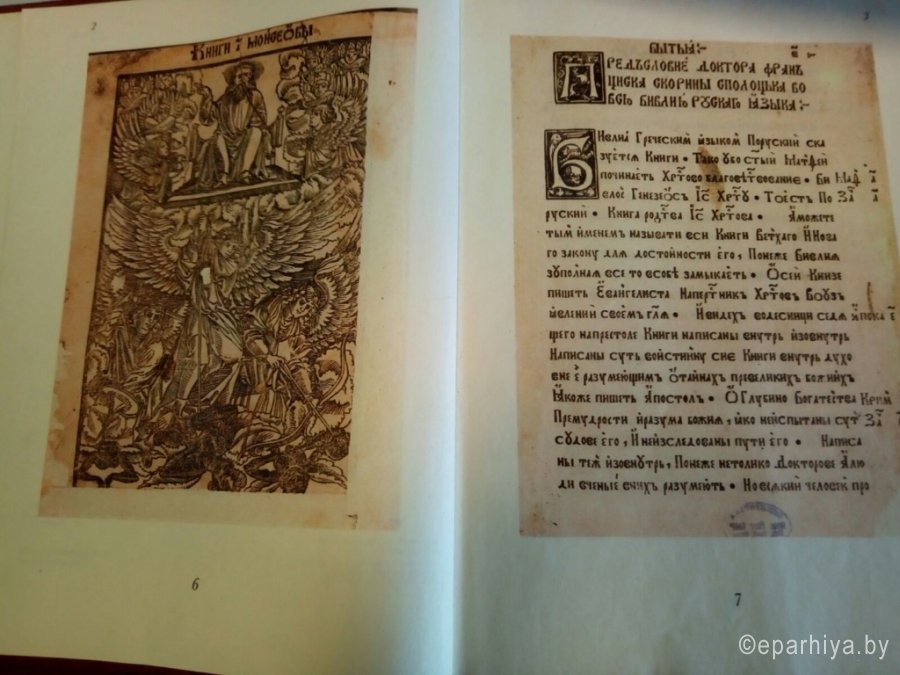 2
Книги г҃ Мойсеѡвы
6
3
БЫТЬИ:
Предъсловие доктора Фран
циска скорины сполоцька во
всю библию рускаго ꙗзыка:
Библиꙗ Греческим Ꙗзыком Поруский ска
зуется Книги • Тако убо с҃тый Матфей
починаеть Хр҃тово благовествование •
велос Генезеѡсъ Іс҃ Хр҃ту • Тоесть По
руский • Книга родства Іс҃ Хр҃това • Ꙗможете
тым именемъ называти вси Книги Ветхаго И Нова
го закону для достойности его, Понеже Библия
зуполная все то всобе замыкаеть • Ѡсей Книзе
пишеть Еѵангелиста Наперсник Хр҃товъ
ꙗвлений своем гл҃ꙗ • И видех водесници седꙗ
щего напрестоле Книги написаны внутрь изовнутрь
Написаны суть воистинну сие Книги внутрь духо
вне разумеющимъ Ѡтайнах превеликих божийхъ
Ꙗкоже пишеть Апостол • Ѡ Глубино Богатества
Премудрости иразума божиꙗ, ꙗко неиспытаны сут
судове его, И неизследованы пути его • Написа
ны теж изовнутрь, Понеже нетолико Докторове Алю
ди вченые вних разумеють • Но всякий человек про
7
©eparhiya.by